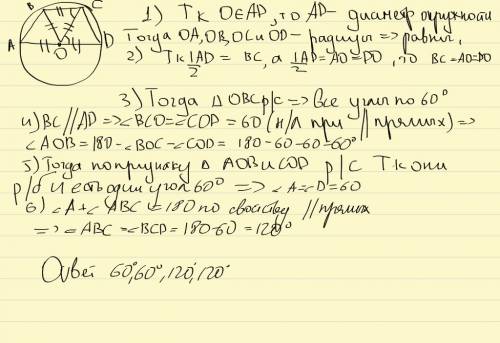 B C
A D
O
1) Тк O∈AD, то AD - диаметр окружности
Тогда OA, OB, OC и OD - радиусы => равны.
2) Тк 1/2 AD = BC, а 1/2 AD = AO = DO, то BC = AO = DO
3) Тогда △ OBC р/с => Все углы по 60°
4) BC // AD => ∠BCO = ∠COD = 60 (н/л при // прямых) =>
∠AOB = 180 - ∠BOC - ∠COD = 180 - 60 - 60 = 60°
5) Тогда по признаку △ AOB и COD р/с Тк они
р/б и есть один угол 60° => ∠A = ∠D = 60
6) ∠A + ∠ABC = 180 по свойству // прямых
=> ∠ABC = ∠BCD = 180 - 60 = 120°
Ответ 60°, 60°, 120°, 120°